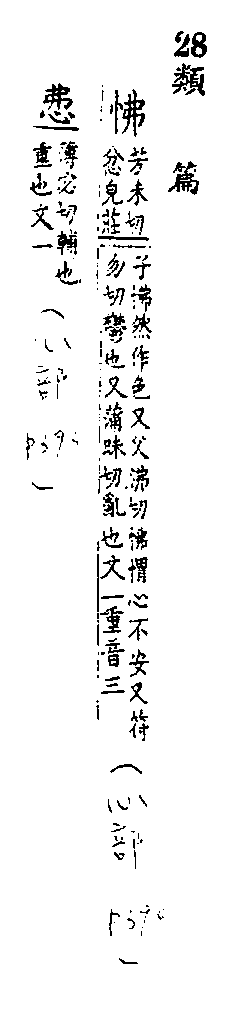 28類篇
怫
芳未切
忿皃莊
子沸然作色又父沸切怫愲心不安又符
勿切鬱也又蒲昧切亂也文一重音三
(心部 p390)
薄宓切輔也
重也文一
(心部
)